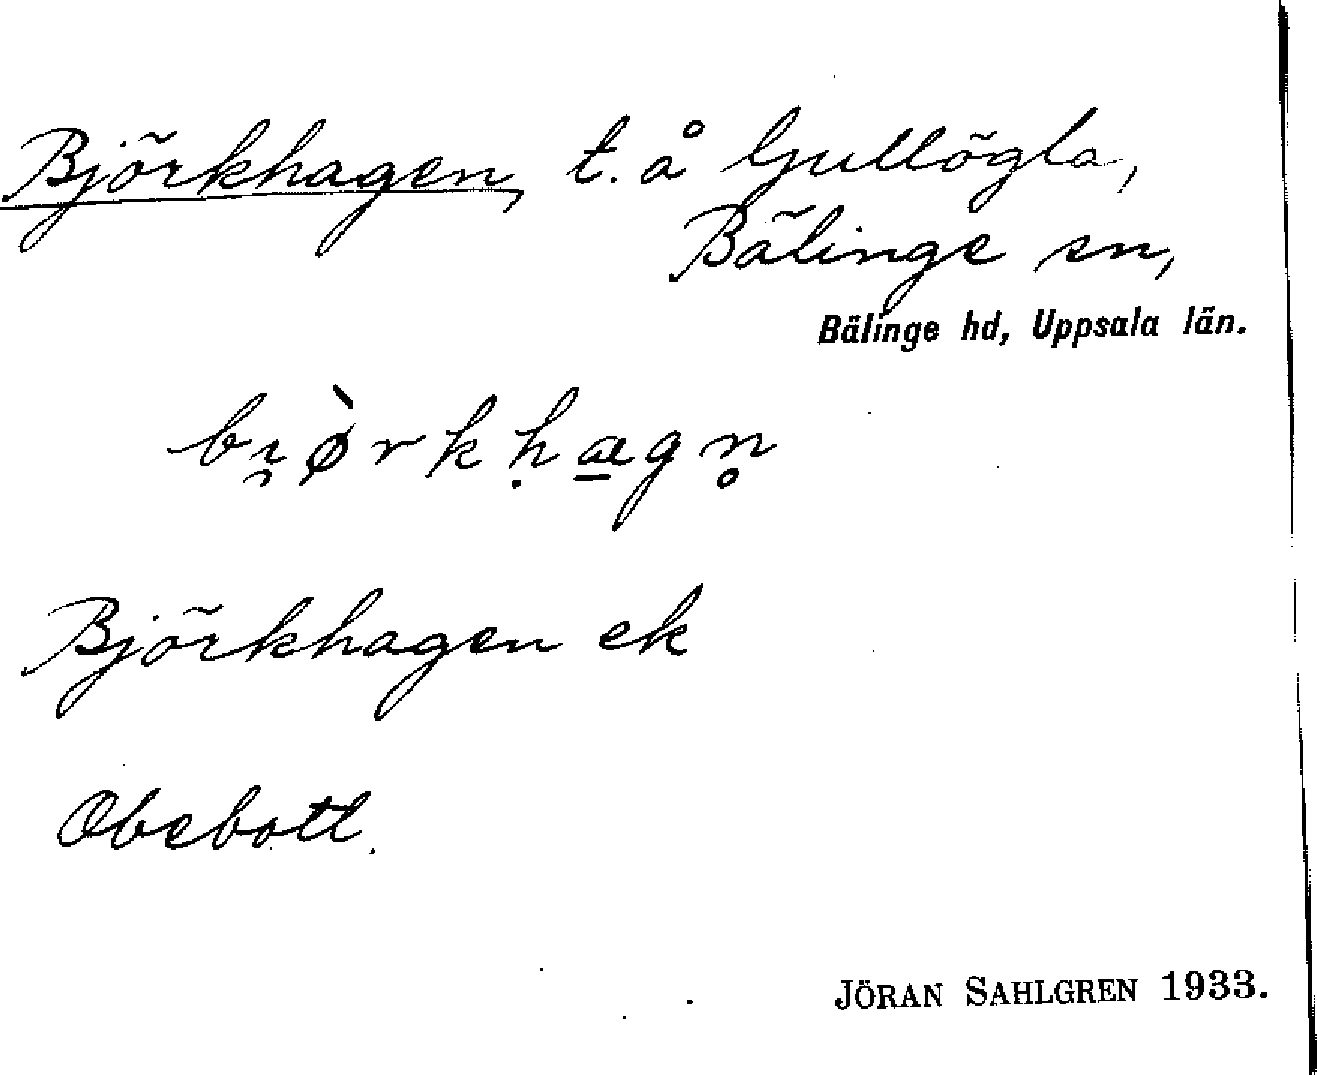 Björkhagen, t. å Gullögla,
Bälinge sn,
Bälinge hd, Uppsala län.
bı̯ø̀rkḥa̲gn̥
Björkhagen ek
Obebott.
JÖRAN SAHLGREN 1933.